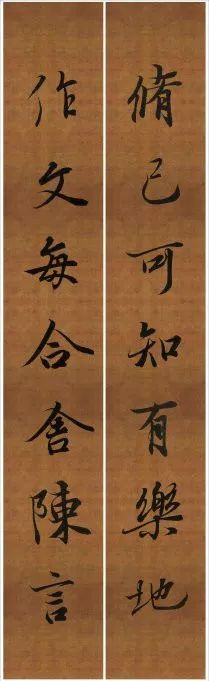 脩己可知有樂地
作文每合舍陳言